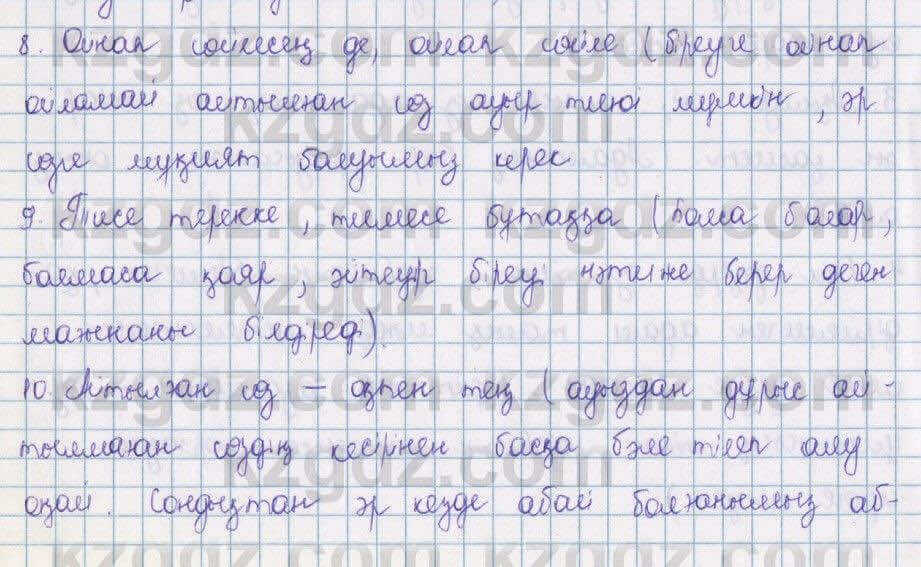 8. Ойнап сөйлесең де, ойлап сөйле (біреуге ойнап
ойламай айтылған сөз ауыр тиюі мүмкін, әр
сөзге мұқият болуымыз керек
9. Тисе терекке, тимесе бұтаққа (болса болар,
болмаса қояр, әйтеуір біреуі нәтиже берер деген
мағынаны білдіреді).
10. Айтылған сөз – оқпен тең (ауыздан дұрыс ай-
тылмаған сөздің кесірінен басқа бәле тілеп алу
оңай. Сондықтан әр кезде абай болғанымыз аб-
kzgdz.com